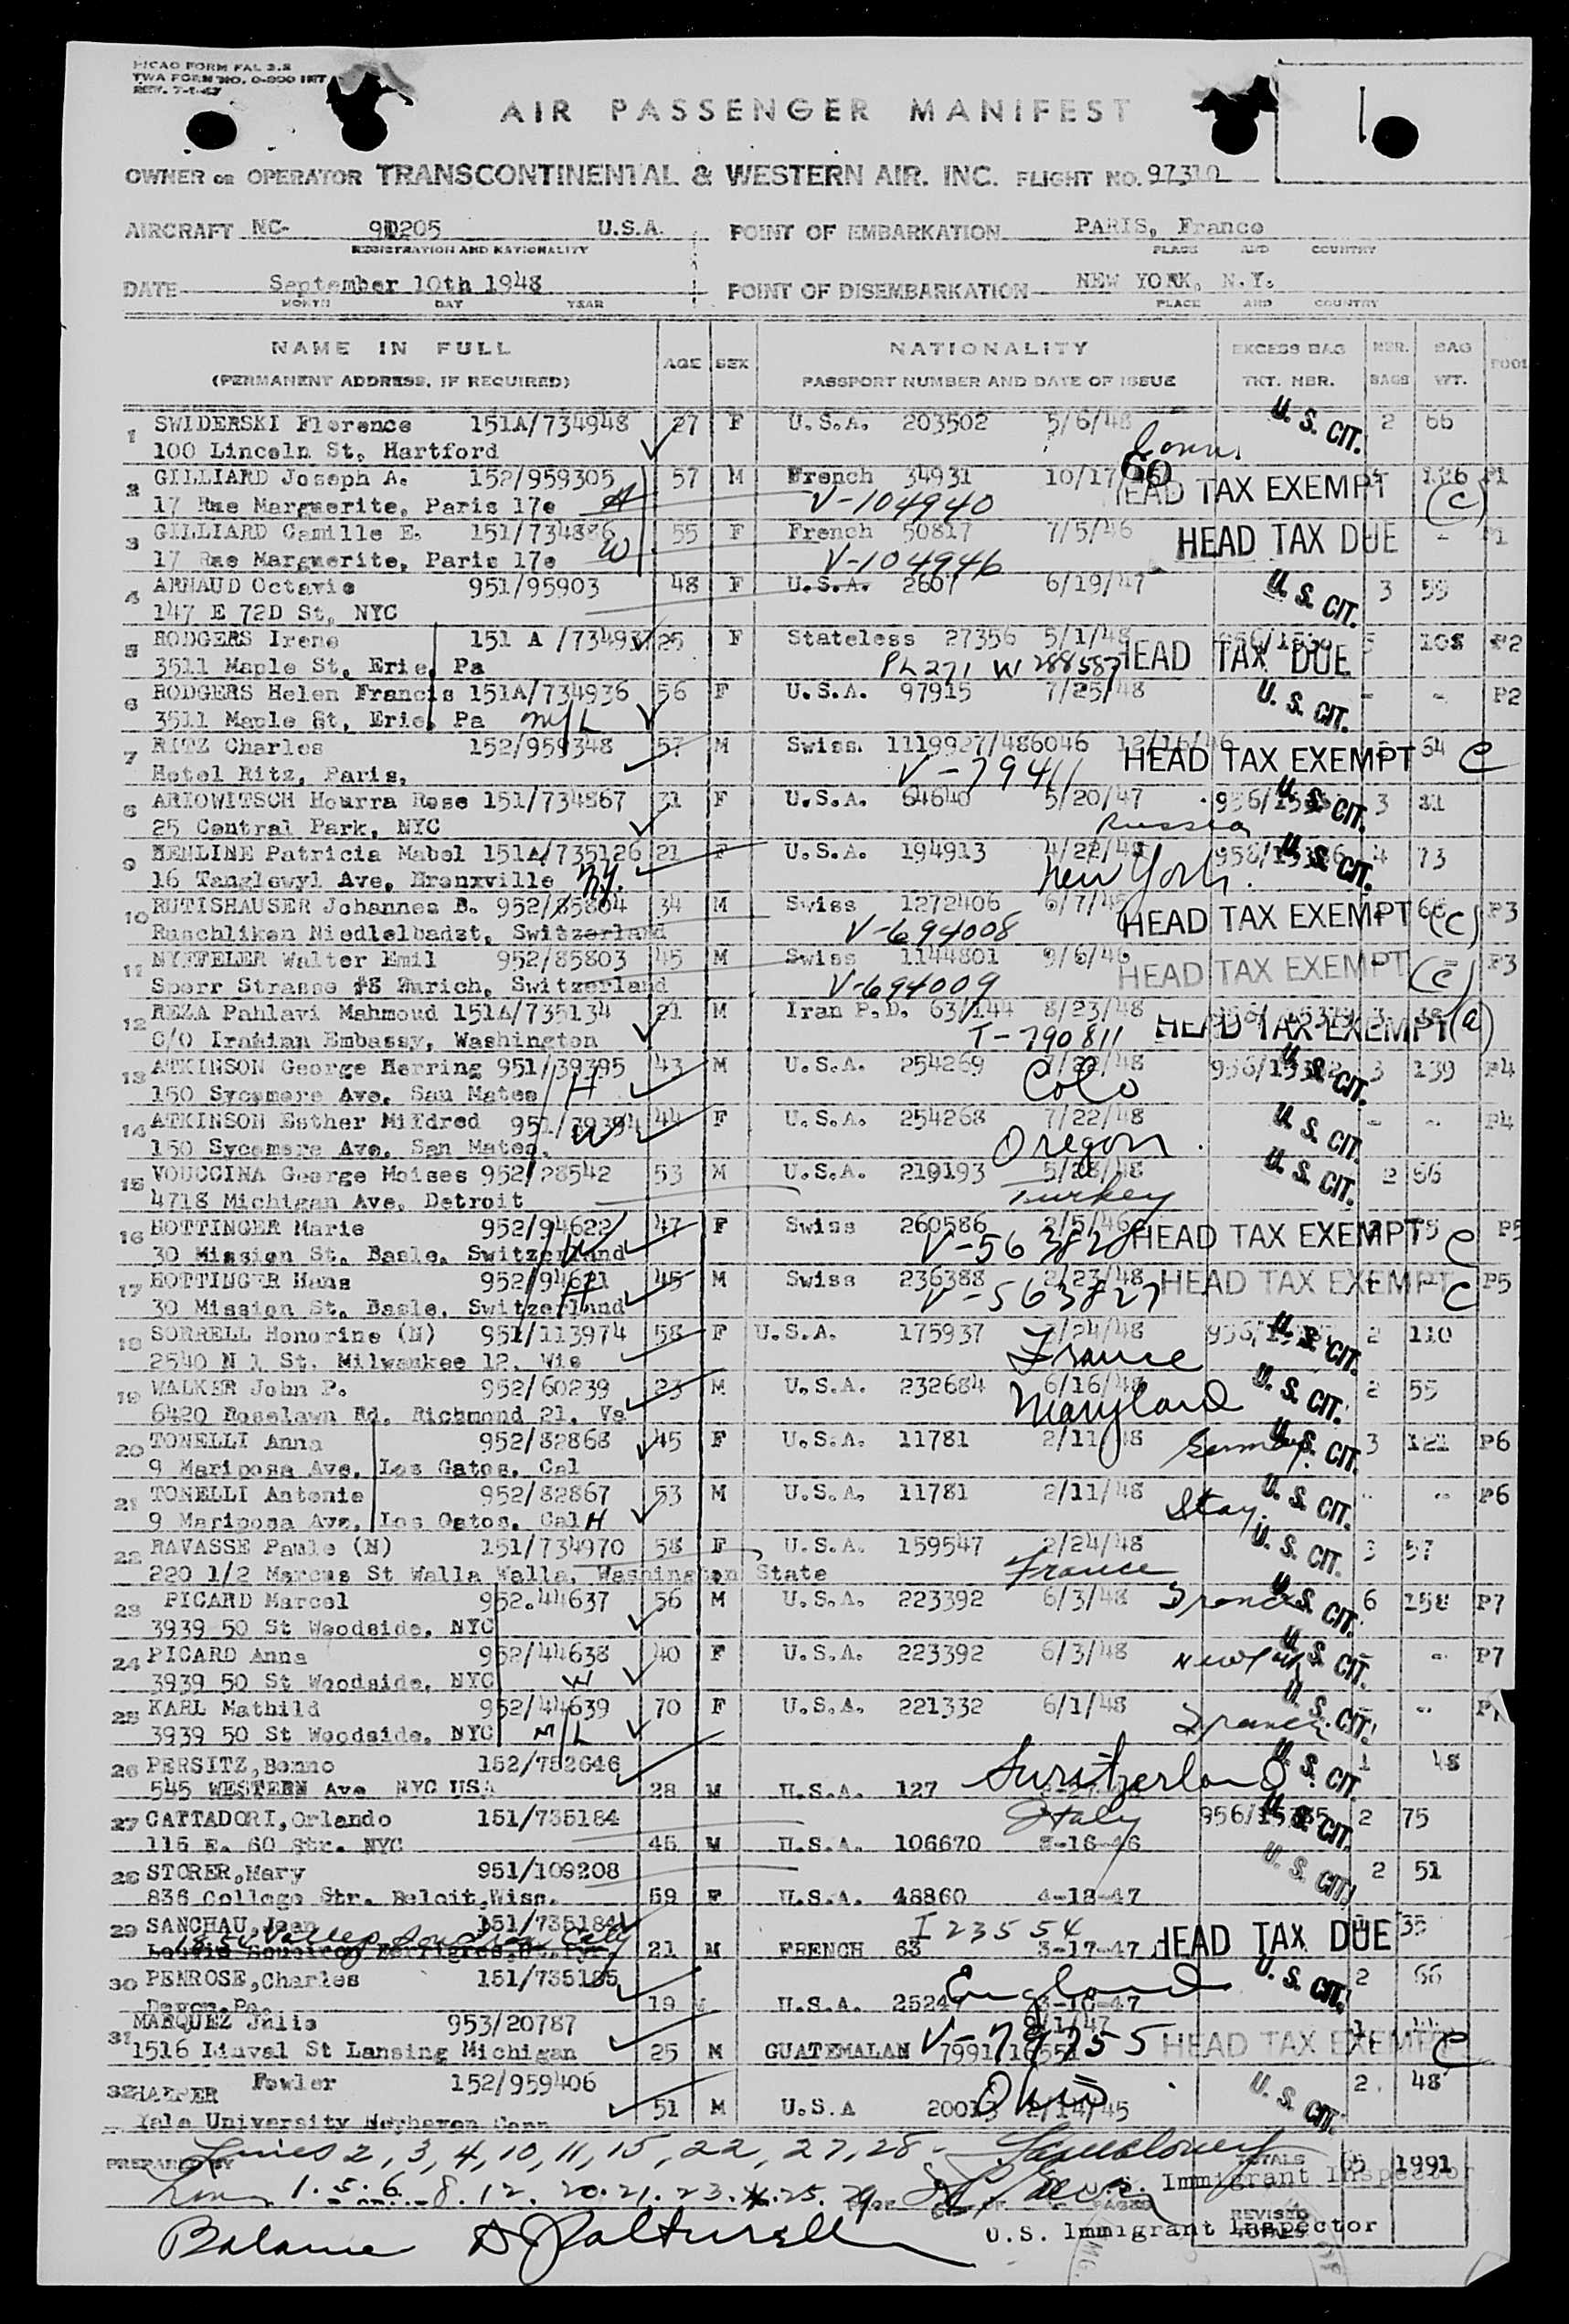 ICAO FORM FAL 2.2
TWA FORM NO. 0-800 INT
REV. 7-1-47
AIR PASSENGER MANIFEST
OWNER OR OPERATOR TRANSCONTINENTAL & WESTERN AIR. INC. FLIGHT NO. 97310
AIRCRAFT NC- 90205 U.S.A. POINT OF EMBARKATION PARIS, France
REGISTRATION AND NATIONALITY PLACE AND COUNTRY
DATE September 10th 1948 POINT OF DISEMBARKATION NEW YORK, N.Y.
MONTH DAY YEAR PLACE AND COUNTRY
NAME IN FULL AGE SEX NATIONALITY EXCESS BAG NBR. BAG POOL
(PERMANENT ADDRESS, IF REQUIRED) PASSPORT NUMBER AND DATE OF ISSUE TKT. NBR. BAGS WT.
1 SWIDERSKI Florence 151A/734948 27 F U.S.A. 203502 5/6/48 U. S. CIT. 2 66
100 Lincoln St, Hartford Conn.
2 GILLIARD Joseph A. 152/959305 57 M French 34931 10/17/ 60 HEAD TAX EXEMPT 126 P1
17 Rue Marguerite, Paris 17e H V-104940 (C)
3 GILLIARD Camille E. 151/734886 55 F French 50817 7/5/46 HEAD TAX DUE - P1
17 Rue Marguerite, Paris 17e W V-104946
4 ARNAUD Octavie 951/95903 48 F U.S.A. 2607 6/19/47 U. S. CIT. 3 59
147 E 72D St, NYC
5 RODGERS Irene 151 A /73493 25 F Stateless 27356 5/1/48 HEAD TAX DUE 108 P2
3511 Maple St, Erie, Pa PL 271 W 288587
6 RODGERS Helen Francis 151A/734936 56 F U.S.A. 97915 7/25/48 U. S. CIT. - - P2
3511 Maple St, Erie, Pa M/L
7 RITZ Charles 152/959348 57 M Swiss. 1119927/486046 12/16/46 HEAD TAX EXEMPT 34 C
Hotel Ritz, Paris, V-79411
8 ARIOWITSCH Hourra Rose 151/734867 31 F U.S.A. 64640 5/20/47 U. S. CIT. 3 81
25 Central Park, NYC Russia
9 HENLINE Patricia Mabel 151A/735126 21 F U.S.A. 194913 4/22/48 U. S. CIT. 4 73
16 Tanglewyl Ave, Bronxville N.Y. New York.
10 RUTISHAUSER Johannes B. 952/85804 34 M Swiss 1272406 6/7/45 HEAD TAX EXEMPT 66 (C) P3
Ruschliken Niedlelbadst, Switzerland V-694008
11 NYFFELER Walter Emil 952/85803 45 M Swiss 1144801 9/6/46 HEAD TAX EXEMPT (C) P3
Sperr Strasse #8 Zurich, Switzerland V-694009
12 REZA Pahlavi Mahmoud 151A/735134 21 M Iran P.D. 63/144 8/23/48 HEAD TAX EXEMPT (a)
C/O Iranian Embassy, Washington T-790811
13 ATKINSON George Herring 951/39395 43 M U.S.A. 254269 7/22/48 U. S. CIT. 3 139 P4
150 Sycamore Ave, San Mateo H Colo
14 ATKINSON Esther Mildred 951/39394 44 F U.S.A. 254268 7/22/48 U. S. CIT. - - P4
150 Sycamore Ave, San Mateo, W Oregon
15 VOUCCINA George Moises 952/28542 53 M U.S.A. 219193 5/28/48 U. S. CIT. 2 66
4718 Michigan Ave, Detroit Turkey
16 HOTTINGER Marie 952/94622 47 F Swiss 260586 2/5/46 HEAD TAX EXEMPT C P5
30 Mission St. Basle, Switzerland W V-563828
17 HOTTINGER Hans 952/94621 45 M Swiss 236388 2/23/48 HEAD TAX EXEMPT C P5
30 Mission St. Basle, Switzerland H V-563827
18 SORRELL Honorine (N) 951/113974 58 F U.S.A. 175937 /24/48 U. S. CIT. 2 110
2540 N 1 St. Milwaukee 12, Wis France
19 WALKER John P. 952/60239 23 M U.S.A. 232684 6/16/48 U. S. CIT. 2 55
6420 Roselawn Rd, Richmond 21, Va Maryland
20 TONELLI Anna 952/82868 45 F U.S.A. 11781 2/11/48 Germany U. S. CIT. 3 121 P6
9 Mariposa Ave, Los Gatos, Cal
21 TONELLI Antonie 952/82867 53 M U.S.A. 11781 2/11/48 Italy U. S. CIT. - - P6
9 Mariposa Ave, Los Gatos, Cal H
22 RAVASSE Paule (N) 151/734970 58 F U.S.A. 159547 2/24/48 U. S. CIT. 3 57
220 1/2 Marcus St Walla Walla, Washington State France
23 PICARD Marcel 952.44637 56 M U.S.A. 223392 6/3/48 France U. S. CIT. 6 158 P7
3939 50 St Woodside, NYC
24 PICARD Anna 952/44638 40 F U.S.A. 223392 6/3/48 U. S. CIT. - P7
3939 50 St Woodside, NYC W
25 KARL Mathild 952/44639 70 F U.S.A. 221332 6/1/48 France U. S. CIT. -
3939 50 St Woodside, NYC M/L
26 PERSITZ, Benno 152/752646 Switzerland U. S. CIT. 1 48
545 WESTERN Ave NYC USA 28 M U.S.A. 127
27 CATTADORI, Orlando 151/735184 Italy U. S. CIT. 2 75
115 E. 60 Str. NYC 45 M U.S.A. 106670 8-16-46
28 STORER, Mary 951/109208 U. S. CIT. 2 51
836 College Str. Beloit, Wisc. 59 F U.S.A. 48860 4-18-47
29 SANCHAU, Jean 151/735184 I 23554 HEAD TAX DUE 35
21 M FRENCH 63 3-17-47
30 PENROSE, Charles 151/735185 England U. S. CIT. 2 66
Devon, Pa. 19 M U.S.A. 25247 -10-47
MARQUEZ Julio 953/20787 /1/47
31 1516 Linval St Lansing Michigan 25 M GUATEMALAN 7991/16551 V-79755 HEAD TAX EXEMPT C
Fowler 152/959406 Ohio 2 48
32 HARPER U. S. CIT.
Yale University Newhaven Conn 51 M U.S.A 2/14/45
PREPARED BY Lines 2, 3, 4, 10, 11, 15, 22, 27, 28 - TOTALS 65 1991
U.S. Immigrant Inspector
Lines 1. 5. 6. 8. 12. 20. 21. 23. 24. 25. 29 PAGE OF PAGES
REVISED TOTALS
Balance U.S. Immigrant Inspector